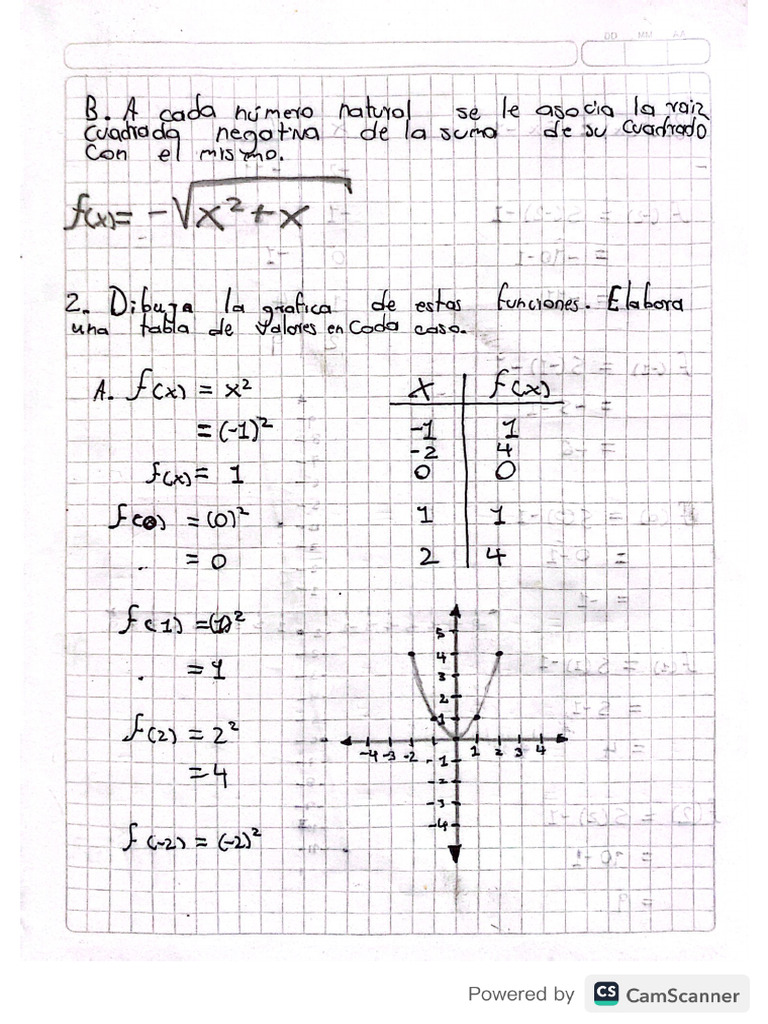 DD MM AA
B. A cada número natural se le asocia la raiz
cuadrada negativa de la suma de su cuadrado
con el mismo.
f(x)= -√x²+x
2. Dibuja la grafica de estas funciones. Elabora
una tabla de valores en cada caso.
A. f(x) = x²
= (-1)²
f(x)= 1
f(0) = (0)²
= 0
f(1) =(1)²
= 1
f(2) = 2²
=4
f(-2) = (-2)²
x f(x)
-1 1
-2 4
0 0
1 1
2 4
5
4
3
2
1
-4 -3 -2 1 2 3 4
-1
-2
-3
-4
Powered by CS CamScanner